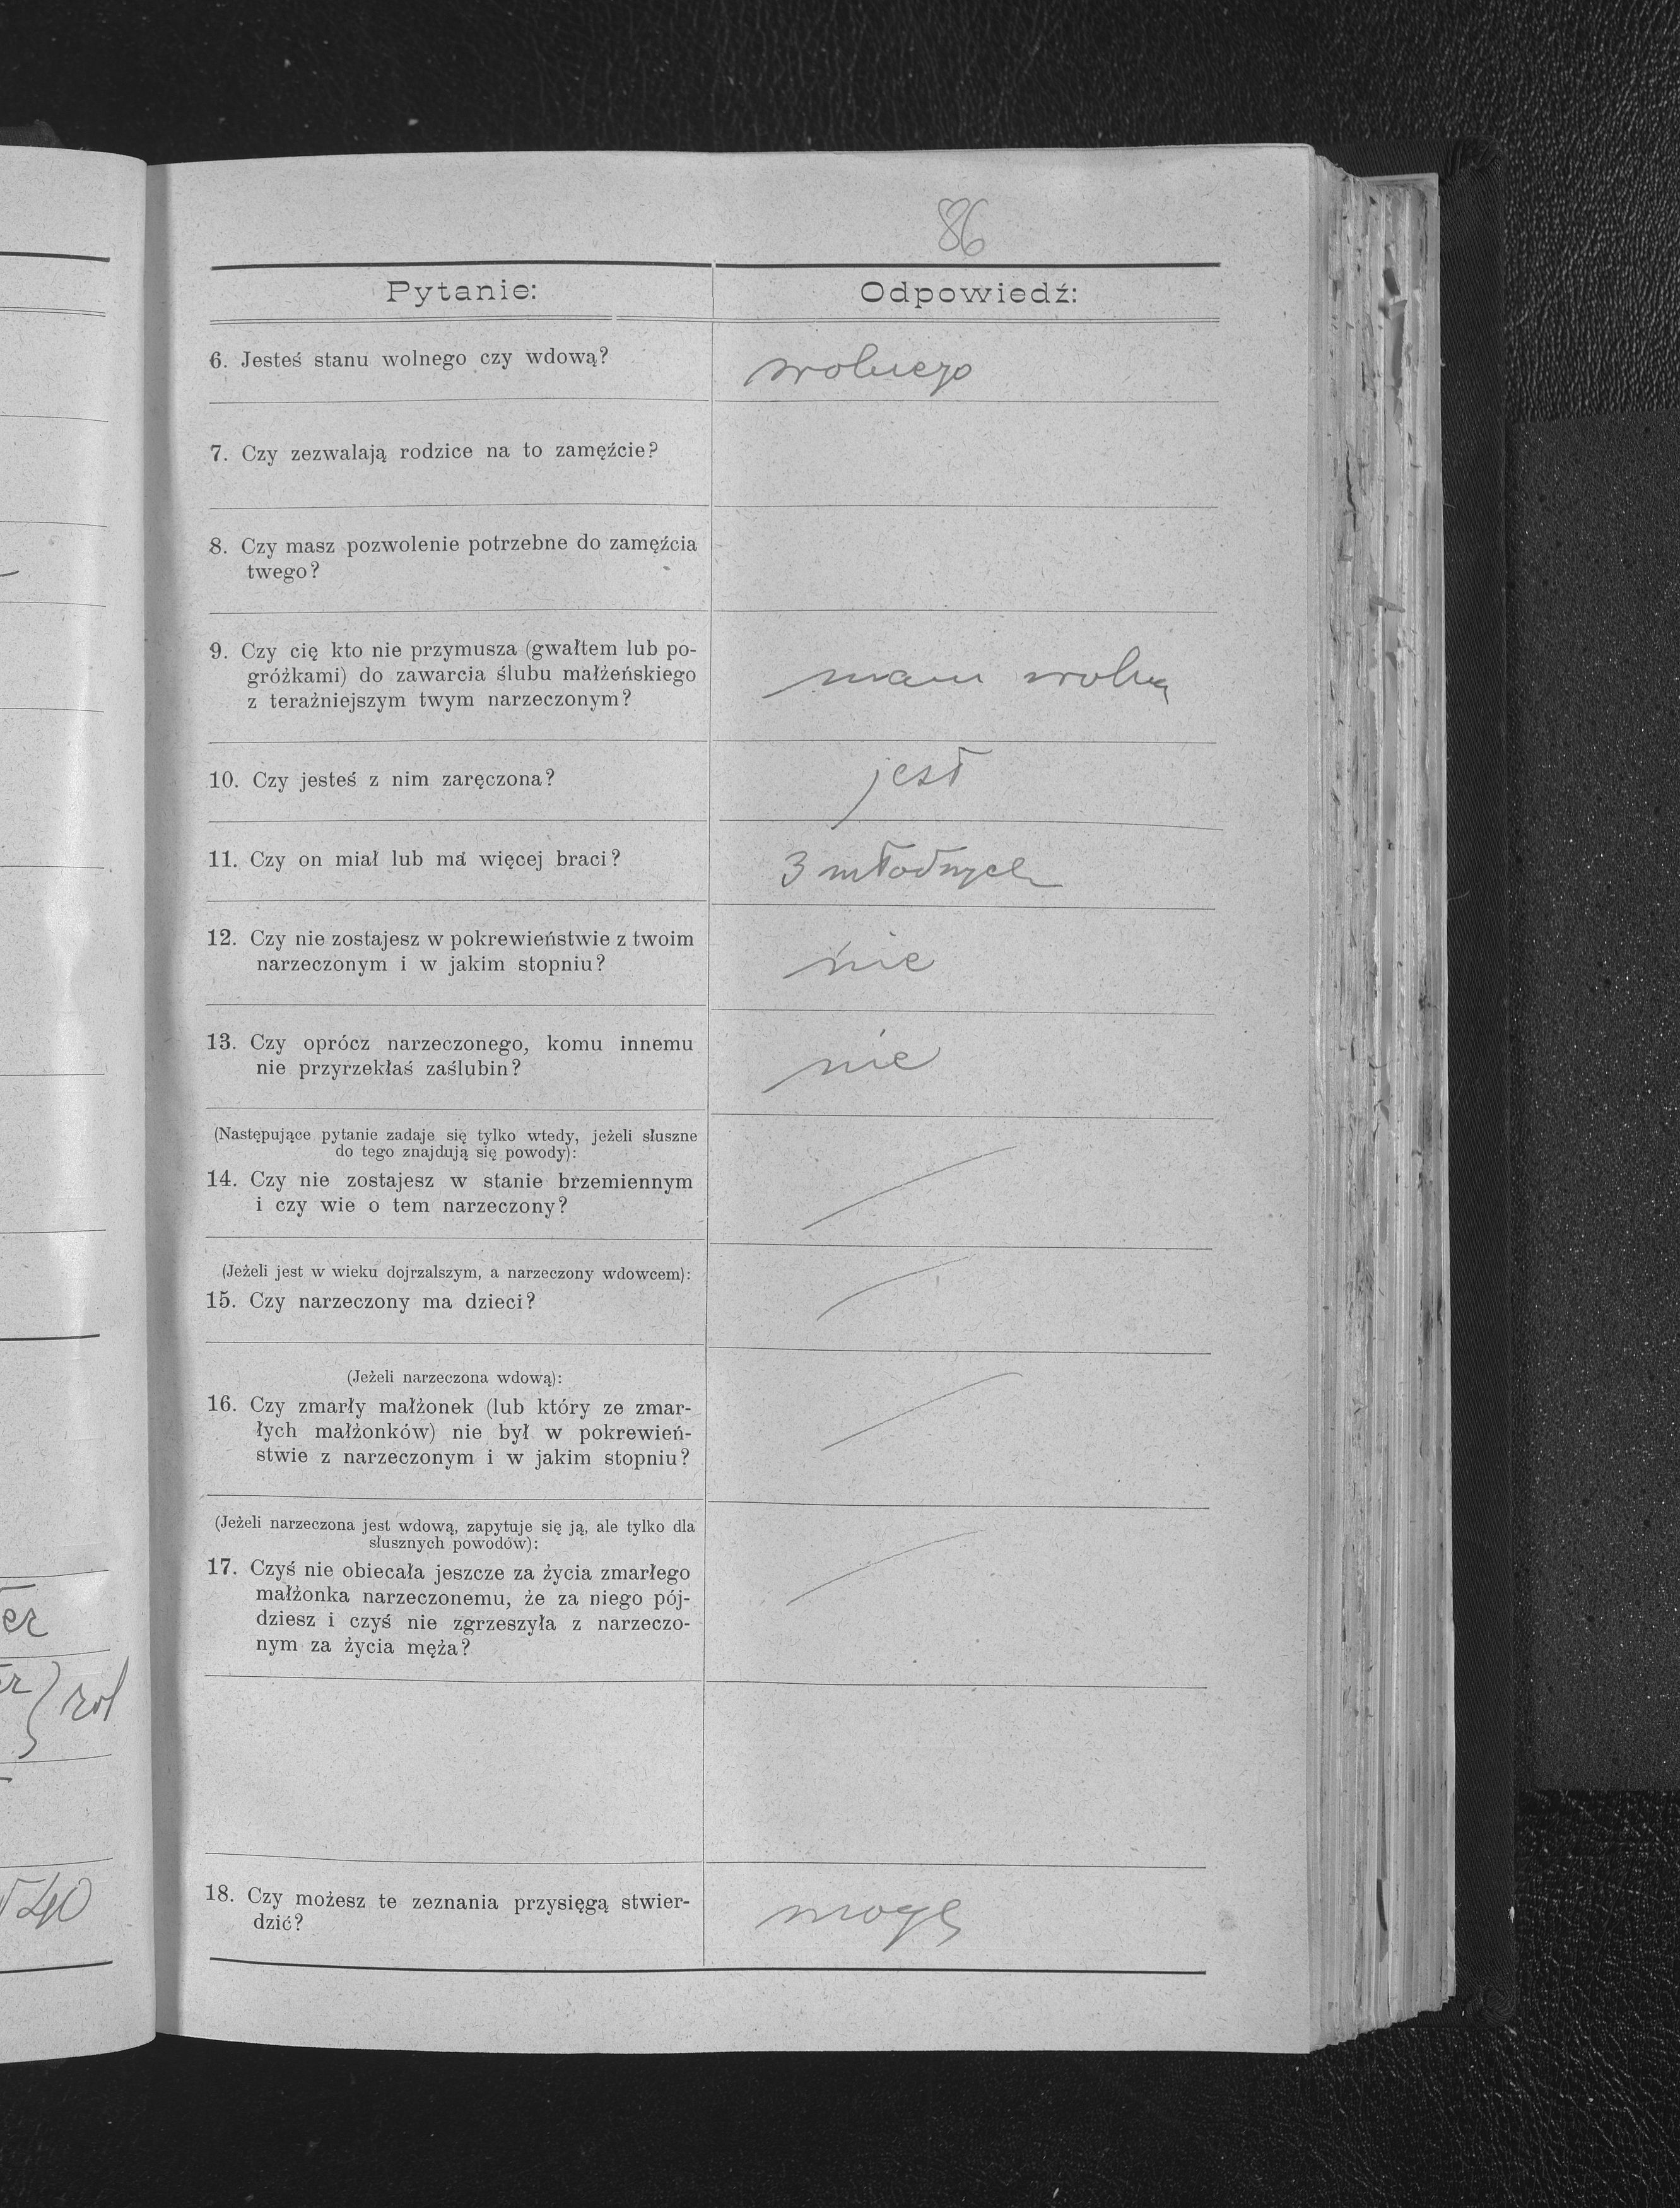 86
Pytanie:
Odpowiedź:
6. Jesteś stanu wolnego czy wdową?
wolnego
7. Czy zezwalają rodzice na to zamęźcie?
8. Czy masz pozwolenie potrzebne do zamęźcia
twego?
9. Czy cię kto nie przymusza (gwałtem lub po-
gróżkami) do zawarcia ślubu małżeńskiego
z teraźniejszym twym narzeczonym?
mam wolną
10. Czy jesteś z nim zaręczona?
jest
11. Czy on miał lub ma więcej braci?
3 młodszych
12. Czy nie zostajesz w pokrewieństwie z twoim
narzeczonym i w jakim stopniu?
nie
13. Czy oprócz narzeczonego, komu innemu
nie przyrzekłaś zaślubin?
nie
(Następujące pytanie zadaje się tylko wtedy, jeżeli słuszne
do tego znajdują się powody):
14. Czy nie zostajesz w stanie brzemiennym
i czy wie o tem narzeczony?
(Jeżeli jest w wieku dojrzalszym, a narzeczony wdowcem):
15. Czy narzeczony ma dzieci?
(Jeżeli narzeczona wdową):
16. Czy zmarły małżonek (lub który ze zmar-
łych małżonków) nie był w pokrewień-
stwie z narzeczonym i w jakim stopniu?
(Jeżeli narzeczona jest wdową, zapytuje się ją, ale tylko dla
słusznych powodów):
17. Czyś nie obiecała jeszcze za życia zmarłego
małżonka narzeczonemu, że za niego pój-
dziesz i czyś nie zgrzeszyła z narzeczo-
nym za życia męża?
18. Czy możesz te zeznania przysięgą stwier-
dzić?
mogę
rol
40